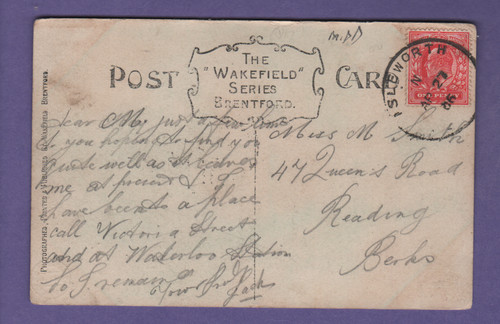 POST CARD
THE
"WAKEFIELD"
SERIES
BRENTFORD.
Midd
ISLEWORTH
27
06
ONE PENNY
PHOTOGRAPHED, PRINTED & PUBLISHED BY WAKEFIELD BRENTFORD.
Dear May just a few lines
to you hoping to find you
quite well as it leaves
me at present I
have been to a place
call Victoria Street
and at Waterloo Station
so I remain
Your Bro Jack
Miss M Smith
47 Queen's Road
Reading
Berks